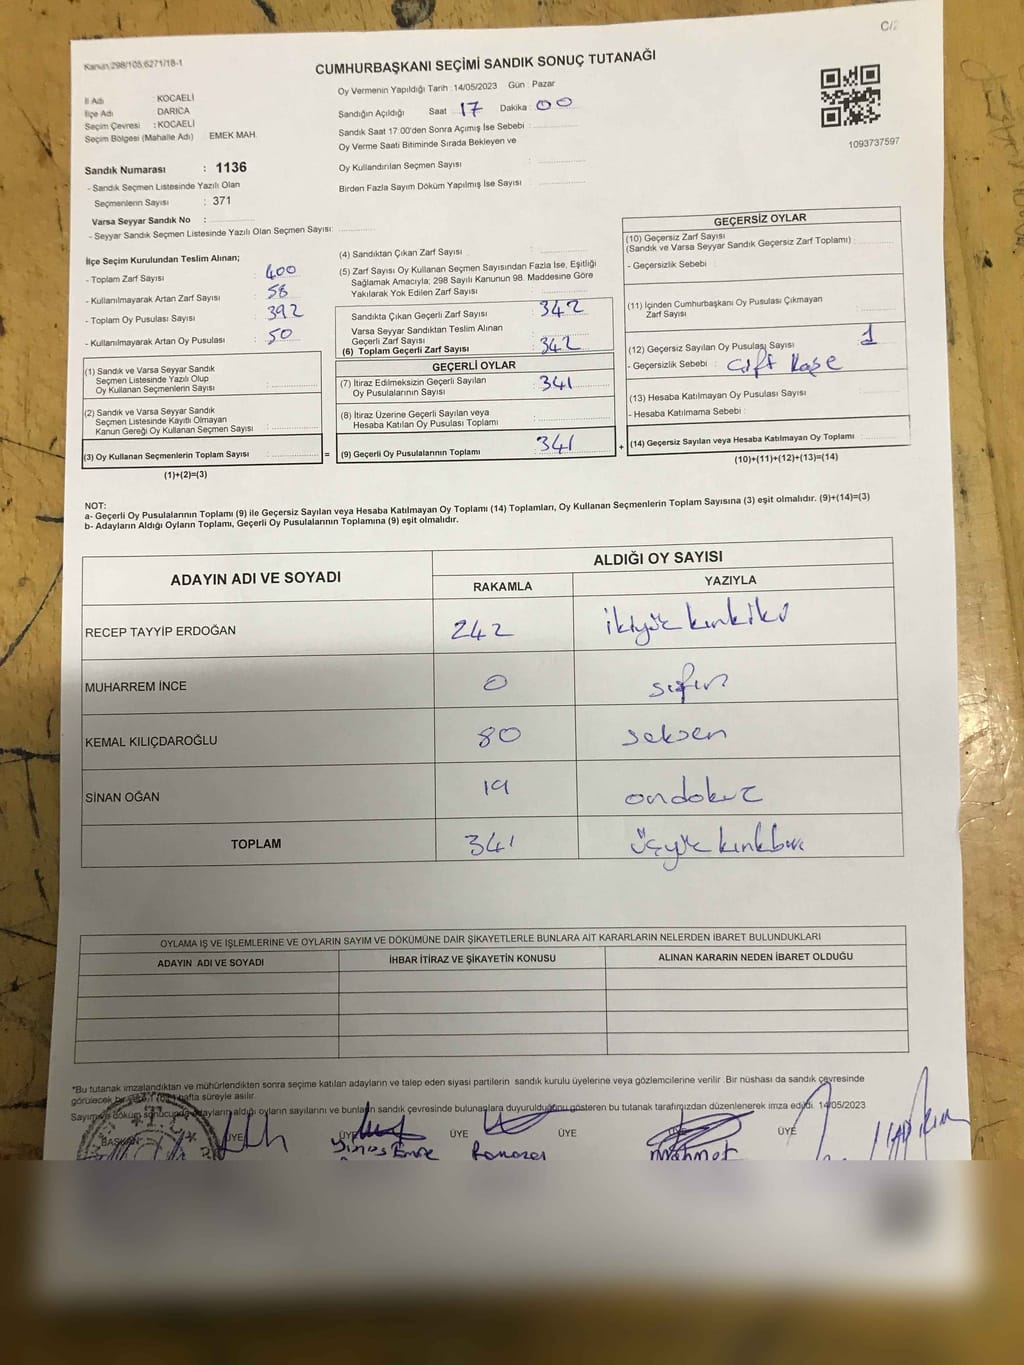 C/2
Kanun:298/105,6271/18-1
CUMHURBAŞKANI SEÇİMİ SANDIK SONUÇ TUTANAĞI
İl Adı : KOCAELİ
İlçe Adı : DARICA
Seçim Çevresi : KOCAELİ
Seçim Bölgesi (Mahalle Adı) : EMEK MAH.
Sandık Numarası : 1136
- Sandık Seçmen Listesinde Yazılı Olan
Seçmenlerin Sayısı : 371
Varsa Seyyar Sandık No :
- Seyyar Sandık Seçmen Listesinde Yazılı Olan Seçmen Sayısı:
Oy Vermenin Yapıldığı Tarih : 14/05/2023 Gün : Pazar
Sandığın Açıldığı Saat : 17 Dakika : 00
Sandık Saat 17:00'den Sonra Açımış İse Sebebi :
Oy Verme Saati Bitiminde Sırada Bekleyen ve
Oy Kullandırılan Seçmen Sayısı :
Birden Fazla Sayım Döküm Yapılmış İse Sayısı :
1093737597
İlçe Seçim Kurulundan Teslim Alınan;
- Toplam Zarf Sayısı : 400
- Kullanılmayarak Artan Zarf Sayısı : 58
- Toplam Oy Pusulası Sayısı : 392
- Kullanılmayarak Artan Oy Pusulası : 50
(1) Sandık ve Varsa Seyyar Sandık
Seçmen Listesinde Yazılı Olup
Oy Kullanan Seçmenlerin Sayısı :
(2) Sandık ve Varsa Seyyar Sandık
Seçmen Listesinde Kayıtlı Olmayan
Kanun Gereği Oy Kullanan Seçmen Sayısı :
(3) Oy Kullanan Seçmenlerin Toplam Sayısı : =
(1)+(2)=(3)
(4) Sandıktan Çıkan Zarf Sayısı :
(5) Zarf Sayısı Oy Kullanan Seçmen Sayısından Fazla İse, Eşitliği
Sağlamak Amacıyla; 298 Sayılı Kanunun 98. Maddesine Göre
Yakılarak Yok Edilen Zarf Sayısı :
Sandıkta Çıkan Geçerli Zarf Sayısı : 342
Varsa Seyyar Sandıktan Teslim Alınan
Geçerli Zarf Sayısı :
(6) Toplam Geçerli Zarf Sayısı : 342
GEÇERLİ OYLAR
(7) İtiraz Edilmeksizin Geçerli Sayılan
Oy Pusulalarının Sayısı : 341
(8) İtiraz Üzerine Geçerli Sayılan veya
Hesaba Katılan Oy Pusulası Toplamı :
(9) Geçerli Oy Pusulalarının Toplamı : 341 +
GEÇERSİZ OYLAR
(10) Geçersiz Zarf Sayısı
(Sandık ve Varsa Seyyar Sandık Geçersiz Zarf Toplamı) :
- Geçersizlik Sebebi :
(11) İçinden Cumhurbaşkanı Oy Pusulası Çıkmayan
Zarf Sayısı :
(12) Geçersiz Sayılan Oy Pusulası Sayısı : 1
- Geçersizlik Sebebi : çift kaşe
(13) Hesaba Katılmayan Oy Pusulası Sayısı :
- Hesaba Katılmama Sebebi :
(14) Geçersiz Sayılan veya Hesaba Katılmayan Oy Toplamı :
(10)+(11)+(12)+(13)=(14)
NOT:
a- Geçerli Oy Pusulalarının Toplamı (9) ile Geçersiz Sayılan veya Hesaba Katılmayan Oy Toplamı (14) Toplamları, Oy Kullanan Seçmenlerin Toplam Sayısına (3) eşit olmalıdır. (9)+(14)=(3)
b- Adayların Aldığı Oyların Toplamı, Geçerli Oy Pusulalarının Toplamına (9) eşit olmalıdır.
ADAYIN ADI VE SOYADI ALDIĞI OY SAYISI
RAKAMLA YAZIYLA
RECEP TAYYİP ERDOĞAN 242 ikiyüz kırkiki
MUHARREM İNCE 0 sıfır
KEMAL KILIÇDAROĞLU 80 seksen
SİNAN OĞAN 19 ondokuz
TOPLAM 341 üçyüz kırkbir
OYLAMA İŞ VE İŞLEMLERİNE VE OYLARIN SAYIM VE DÖKÜMÜNE DAİR ŞİKAYETLERLE BUNLARA AİT KARARLARIN NELERDEN İBARET BULUNDUKLARI
ADAYIN ADI VE SOYADI İHBAR İTİRAZ VE ŞİKAYETİN KONUSU ALINAN KARARIN NEDEN İBARET OLDUĞU
*Bu tutanak imzalandıktan ve mühürlendikten sonra seçime katılan adayların ve talep eden siyasi partilerin sandık kurulu üyelerine veya gözlemcilerine verilir. Bir nüshası da sandık çevresinde
görülecek bir yere 1 hafta süreyle asılır.
Sayım ve döküm sonucunda adayların aldığı oyların sayılarını ve bunların sandık çevresinde bulunanlara duyurulduğunu gösteren bu tutanak tarafımızdan düzenlenerek imza edildi. 14/05/2023
BAŞKAN ÜYE ÜYE ÜYE ÜYE ÜYE
Yunus Emre Ramazan Mehmet